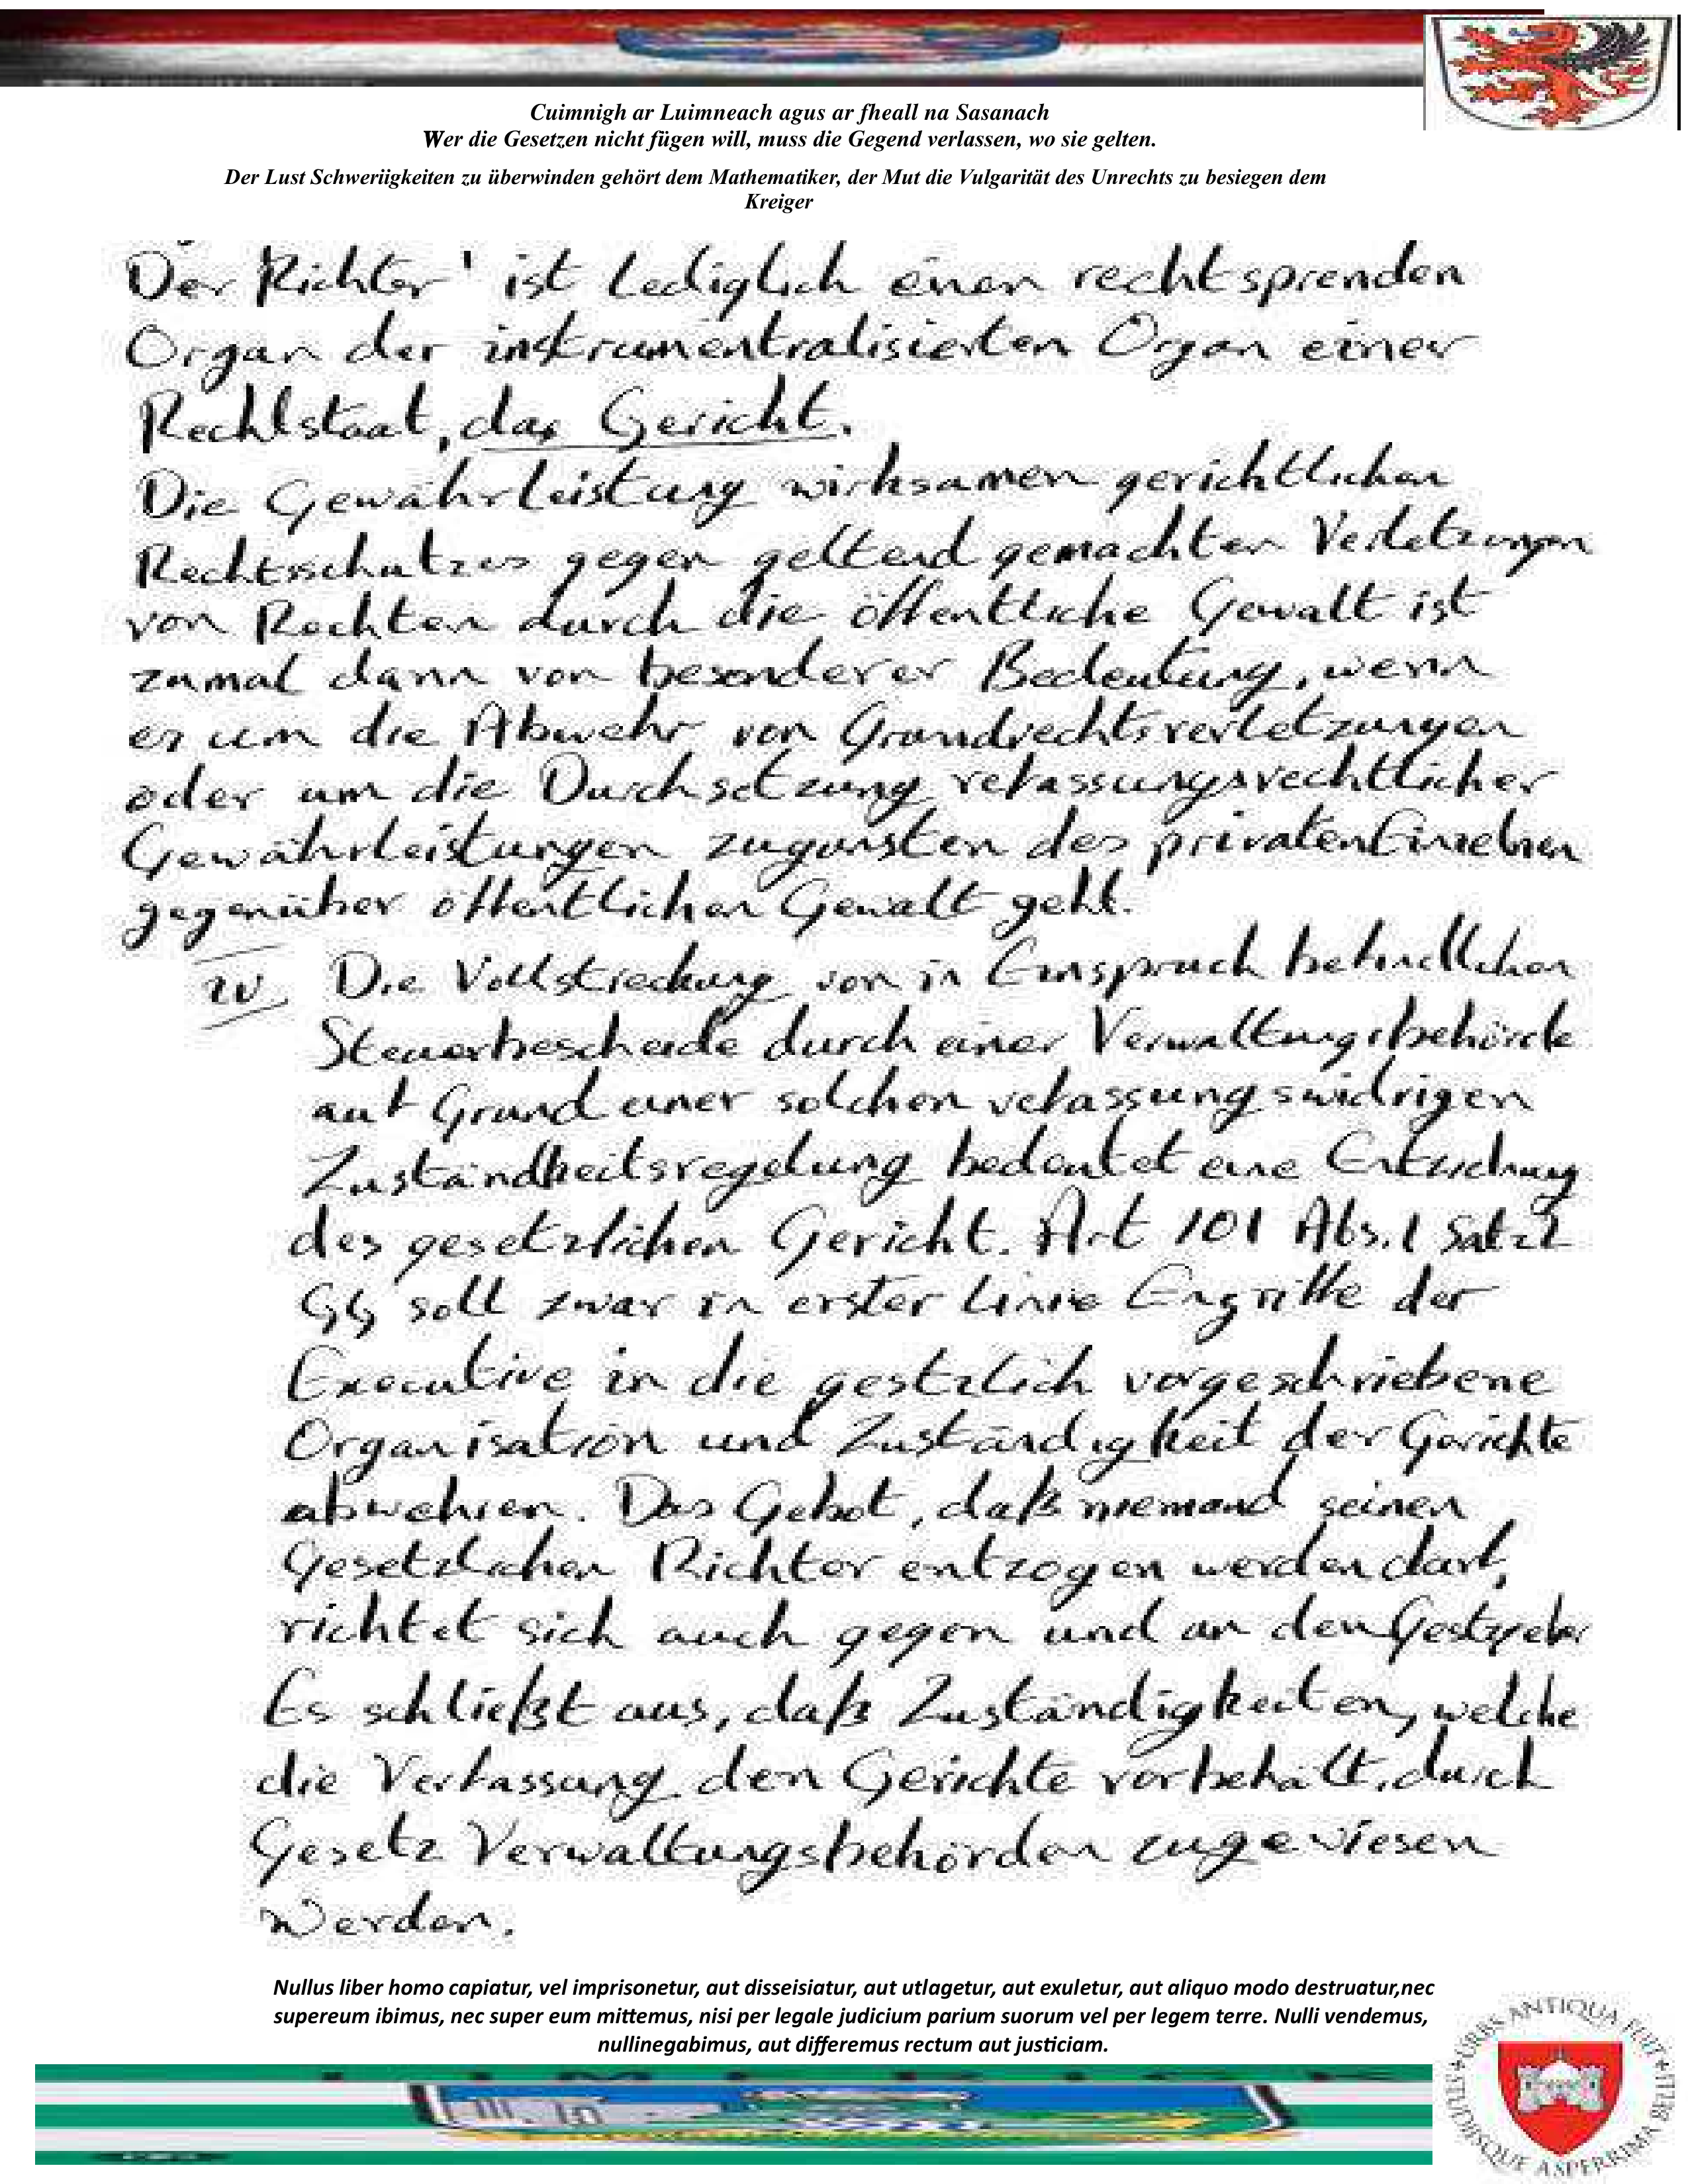 Cuimnigh ar Luimneach agus ar fheall na Sasanach
Wer die Gesetzen nicht fügen will, muss die Gegend verlassen, wo sie gelten.
Der Lust Schweriigkeiten zu überwinden gehört dem Mathematiker, der Mut die Vulgarität des Unrechts zu besiegen dem
Kreiger
Der Richter' ist lediglich einen rechtsprenden
Organ der instrumentralisierten Organ einer
Rechtstaat, das Gericht.
Die Gewährleistung wirksamen gerichtlichen
Rechtsschutzes gegen geltend gemachten Verletzungen
von Rechten durch die öffentliche Gewalt ist
zumal dann von besonderer Bedeutung, wenn
es um die Abwehr von Grundrechtsverletzungen
oder um die Durchsetzung vefassungsrechtlicher
Gewährleistungen zugunsten des privaten Einzelnen
gegenüber öffentlichen Gewalt geht.
IV Die Vollstreckung von in Einspruch befindlichen
Steuerbescheide durch einer Verwaltungsbehörde
auf Grund einer solchen vefassungswidrigen
Zuständkeitsregelung bedeutet eine Entziehung
des gesetzlichen Gericht. Art 101 Abs. 1 Satz 2
GG soll zwar in erster Linie Engriffe der
Executive in die gestzlich vorgeschriebene
Organisation und Zuständigkeit der Gerichte
abwehren. Das Gebot, daß niemand seinen
Gesetzlichen Richter entzogen werden darf,
richtet sich auch gegen und an den Gestzgeber
Es schließt aus, daß Zuständigkeiten, welche
die Verfassung den Gerichte vorbehält, durch
Gesetz Verwaltungsbehörden zugewiesen
werden.
Nullus liber homo capiatur, vel imprisonetur, aut disseisiatur, aut utlagetur, aut exuletur, aut aliquo modo destruatur,nec
supereum ibimus, nec super eum mittemus, nisi per legale judicium parium suorum vel per legem terre. Nulli vendemus,
nullinegabimus, aut differemus rectum aut justiciam.
URBS ANTIQUA FUIT STUDIISQUE ASPERRIMA BELLI